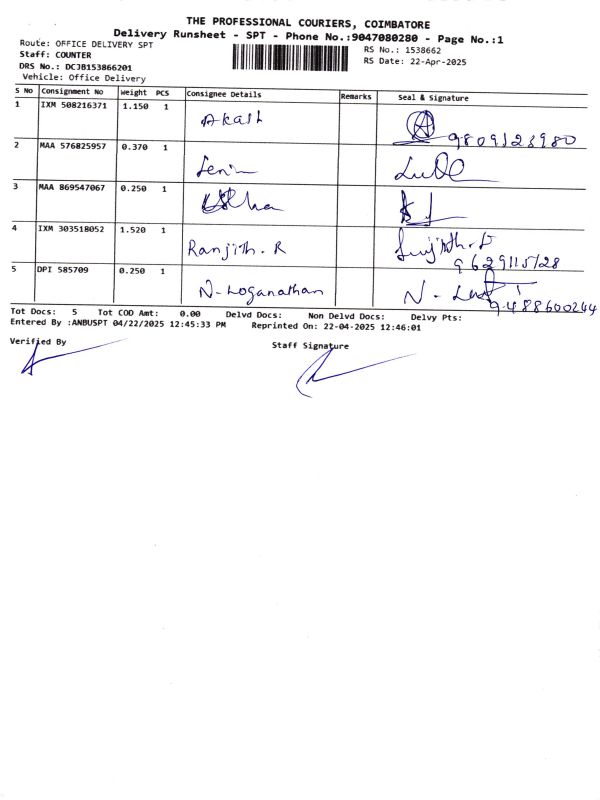 THE PROFESSIONAL COURIERS, COIMBATORE
Delivery Runsheet - SPT - Phone No.:9047080280 - Page No.:1
Route: OFFICE DELIVERY SPT
RS No.: 1538662
Staff: COUNTER
RS Date: 22-Apr-2025
DRS No.: DCJB153866201
Vehicle: Office Delivery
S No Consignment No Weight PCS Consignee Details Remarks Seal & Signature
1 IXM 508216371 1.150 1 Akash
2 MAA 576825957 0.370 1 Lenin
3 MAA 869547067 0.250 1
4 IXM 303518052 1.520 1 Ranjith. R
9629115128
5 DPI 585709 0.250 1 N. Loganathan N.
9488600244
Tot Docs: 5 Tot COD Amt: 0.00 Delvd Docs: Non Delvd Docs: Delvy Pts:
Entered By :ANBUSPT 04/22/2025 12:45:33 PM Reprinted On: 22-04-2025 12:46:01
Verified By
Staff Signature